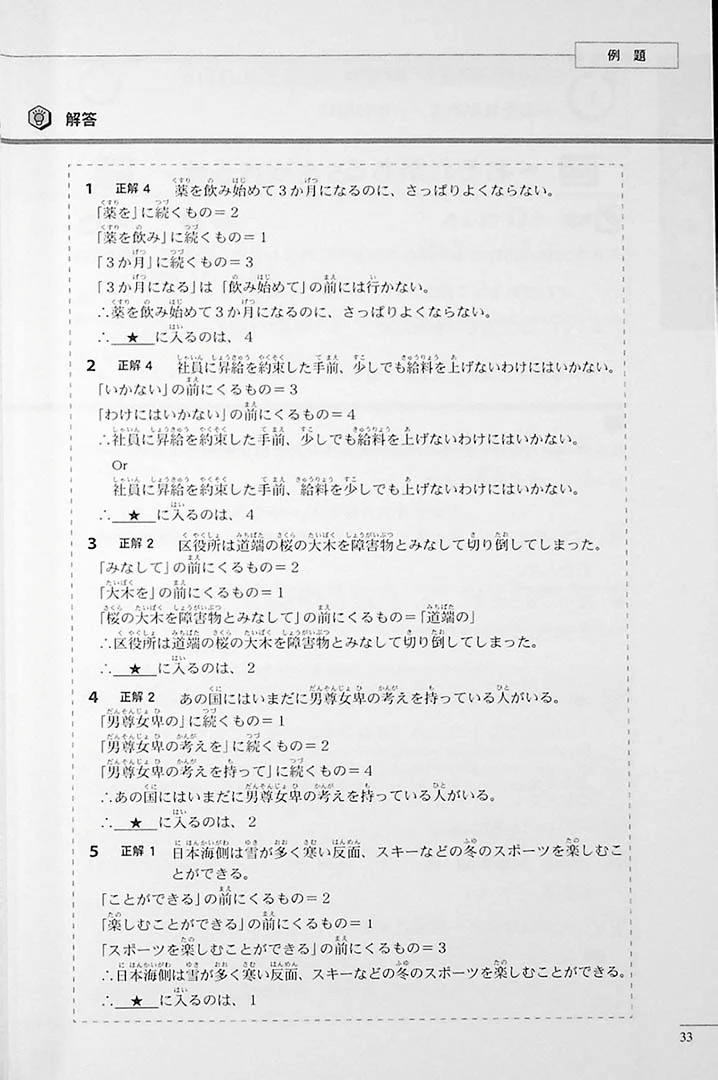 例 題
解答
1 正解 4 薬を飲み始めて３か月になるのに、さっぱりよくならない。
「薬を」に続くもの＝2
「薬を飲み」に続くもの＝1
「３か月」に続くもの＝3
「３か月になる」は「飲み始めて」の前には行かない。
∴薬を飲み始めて３か月になるのに、さっぱりよくならない。
∴ ★ に入るのは、4
2 正解 4 社員に昇給を約束した手前、少しでも給料を上げないわけにはいかない。
「いかない」の前にくるもの＝3
「わけにはいかない」の前にくるもの＝4
∴社員に昇給を約束した手前、少しでも給料を上げないわけにはいかない。
Or
社員に昇給を約束した手前、給料を少しでも上げないわけにはいかない。
∴ ★ に入るのは、4
3 正解 2 区役所は道端の桜の大木を障害物とみなして切り倒してしまった。
「みなして」の前にくるもの＝2
「大木を」の前にくるもの＝1
「桜の大木を障害物とみなして」の前にくるもの＝「道端の」
∴区役所は道端の桜の大木を障害物とみなして切り倒してしまった。
∴ ★ に入るのは、2
4 正解 2 あの国にはいまだに男尊女卑の考えを持っている人がいる。
「男尊女卑の」に続くもの＝1
「男尊女卑の考えを」に続くもの＝2
「男尊女卑の考えを持って」に続くもの＝4
∴あの国にはいまだに男尊女卑の考えを持っている人がいる。
∴ ★ に入るのは、2
5 正解 1 日本海側は雪が多く寒い反面、スキーなどの冬のスポーツを楽しむこ
とができる。
「ことができる」の前にくるもの＝2
「楽しむことができる」の前にくるもの＝1
「スポーツを楽しむことができる」の前にくるもの＝3
∴日本海側は雪が多く寒い反面、スキーなどの冬のスポーツを楽しむことができる。
∴ ★ に入るのは、1
33